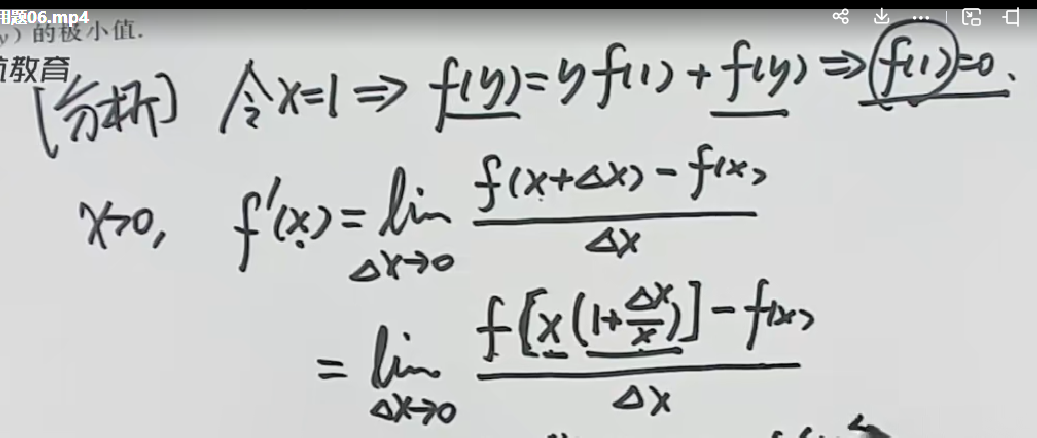 用题06.mp4
y) 的极小值.
航教育
[分析] 令x=1 ⇒ f(y)=y f(1) + f(y) ⇒ f(1)=0.
x>0, f'(x) = lim Δx→0 (f(x+Δx) - f(x)) / Δx
= lim Δx→0 (f[x(1+Δx/x)] - f(x)) / Δx